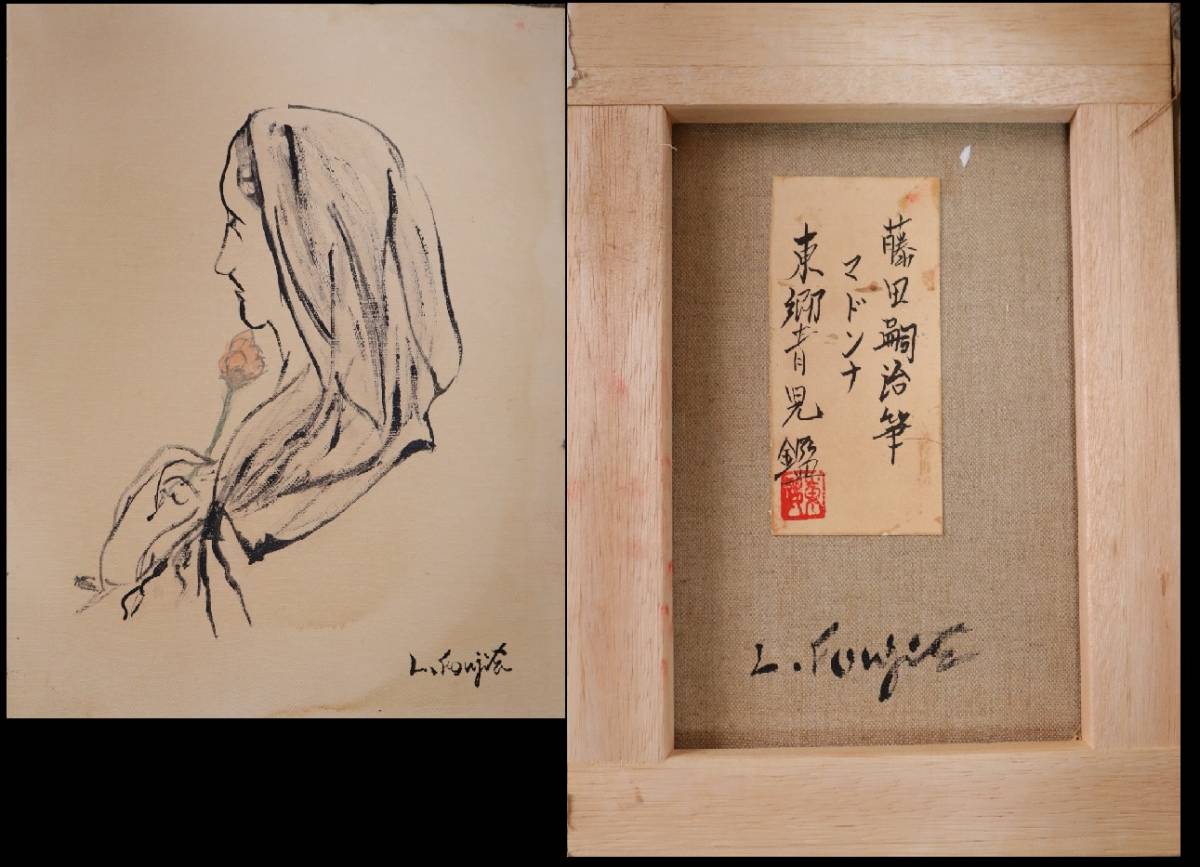 L. Foujita
藤田嗣治筆
マドンナ
東郷青児鑑
L. Foujita